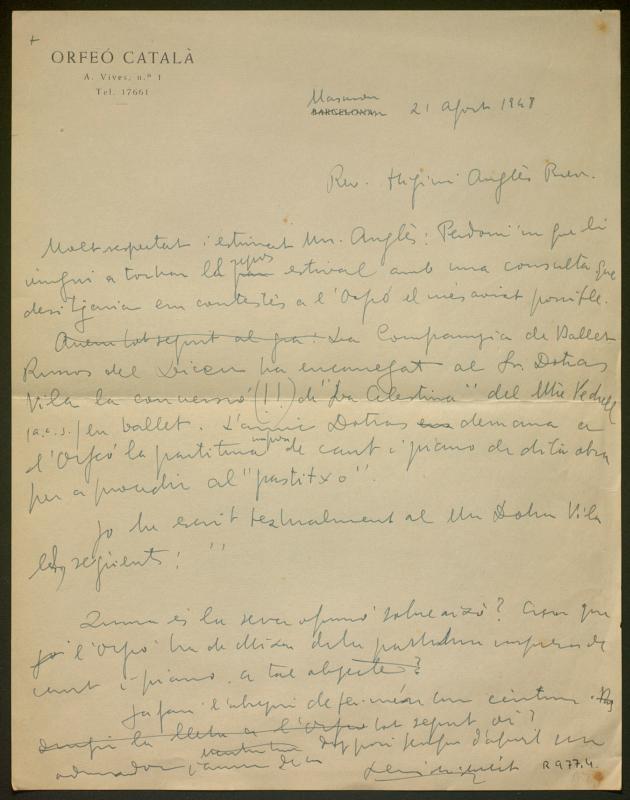 ORFEÓ CATALÀ
A. Vives, n.º 1
Tel. 17661
Masnou
BARCELONA
21 Agost 1948
Rev. Higini Anglès Prev.
Molt respectat i estimat Mn. Anglès: Perdoni'm que li
vingui a torbar la repòs estival amb una consulta que
desitjaria em contestés a l'Orfeó el més aviat possible.
Anem tot seguit al gra: La Companyia de Ballet
Russos del Liceu ha encarregat al Sr. Dotras
Vila la conversió (!!) de "La Celestina" del Mtre Pedrell
(a.c.s.) en ballet. L'amic Dotras demana a
l'Orfeó la partitura impresa de cant i piano de dita obra
per a procedir al "pastitxo".
Jo he escrit textualment al Mtre Dotras Vila
les següents: "
Quina és la seva opinió sobre això? Creu que
l'Orfeó ha de deixar dita partitura impresa de
cant i piano a tal objecte?
tot seguit oi?
admirador i amic
R 977.4.